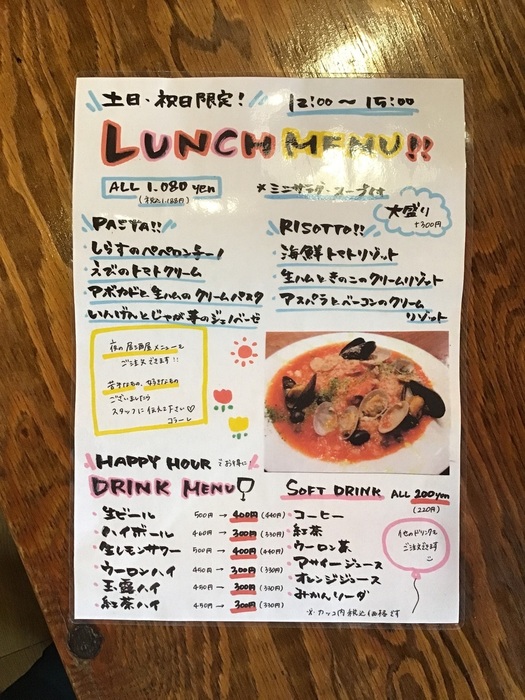 土日、祝日限定! 12:00〜15:00
LUNCH MENU!!
ALL 1.080 yen
(税込1,188円)
※ミニサラダ・スープ付
大盛り
+300円
PASTA!!
しらすのペペロンチーノ
えびのトマトクリーム
アボカドと生ハムのクリームパスタ
いんげんとじゃが芋のジェノベーゼ
RISOTTO!!
海鮮トマトリゾット
生ハムときのこのクリームリゾット
アスパラとベーコンのクリーム
リゾット
夜の居酒屋メニューも
ご注文できます!!
苦手なもの、好きなもの
ございましたら
スタッフに伝え下さい♡
HAPPY HOUR でお得に
DRINK MENU
・生ビール 500円→400円(440円)
・ハイボール 400円→300円(330円)
・生レモンサワー 500円→400円(440円)
・ウーロンハイ 450円→300円(330円)
・玉露ハイ 450円→300円(330円)
・紅茶ハイ 450円→300円(330円)
SOFT DRINK ALL 200yen
(220円)
・コーヒー
・紅茶
・ウーロン茶
・アサイージュース
・オレンジジュース
・みかんソーダ
※カッコ内税込価格です
他のドリンクも
ご注文できます